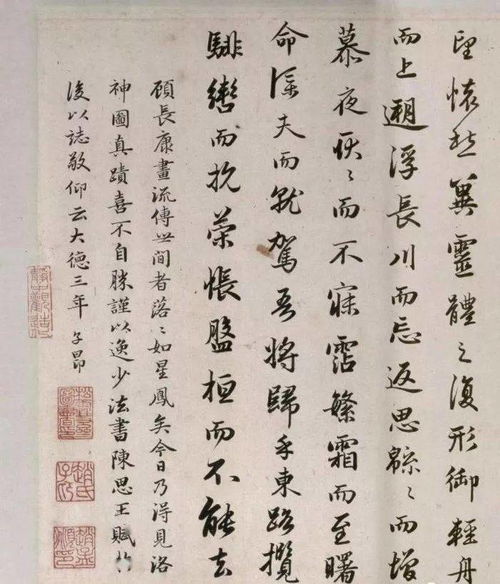 望懷愁冀靈體之復形御輕舟
而上遡浮長川而忘返思綿〻而增
慕夜耿〻而不寐霑繁霜而至曙
命僕夫而就駕吾將歸乎東路攬
騑轡而抗策悵盤桓而不能去
顧長康畫流傳世間者落〻如星鳳矣今日乃得見洛
神圖真蹟喜不自勝謹以逸少法書陳思王賦於
後以誌敬仰云大德三年 子昂
趙氏子昂